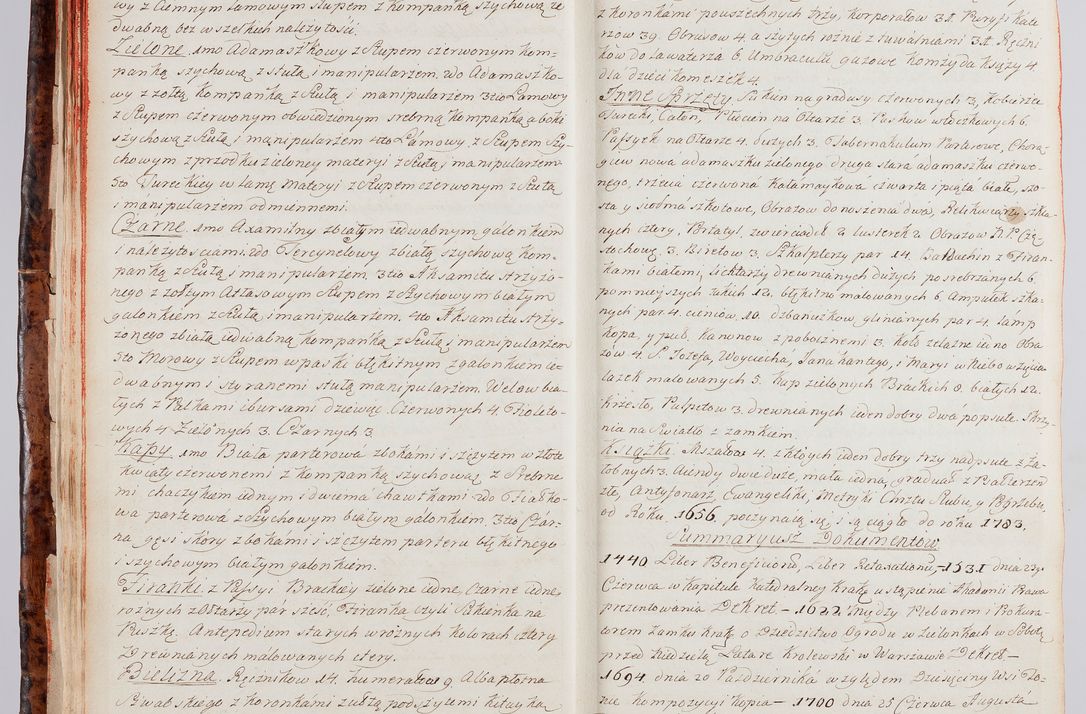 wy z Ciemnym Łamowym Słupem z kompanką szychową ie
dwabną bez wszelkich należytości.
Zielone. 1mo Adamaszkowy z Słupem czerwonym kom-
panką szychową z stułą i manipularzem. 2do Adamaszko-
wy z zołtą kompanką z Stułą i manipularzem 3tio Lamowy
z Słupem czerwonym obwiedzionym srebrną kompanką a boki
szychową z Stułą i manipularzem 4to Lamowy z Słupem Szy-
chowym z przodku zieloney materyi z Stułą i manipularzem
5to Tureckiey w łamę materyi z Słupem czerwonym z Stułą
i manipularzem odmiennemi.
Czarne. 1mo Axamitny z białym iedwabnym galonkiem
i należytościami. 2do Tercynelowy z białą szychową kom-
panką z Stułą i manipularzem. 3tio Aksamitu strzyżo-
nego z zołtym Atłasowym Słupem z Szychowym białym
galonkiem z Stułą i manipularzem. 4to Aksamitu strzy-
żonego z białą iedwabną kompanką z Stułą i manipularzem
5to Morowy z Słupem w paski błękitnym z galonkiem ie-
dwabnym i z stułą manipularzem. Welow bia-
łych z Palkami i bursami dziewięc. Czerwonych 4. Fioleto-
wych 4 Zielonych 3. Czarnych 3.
Kapy. 1mo Biała parterowa z bokami i szczytem w złote
kwiaty czerwonemi z kompanką szychową z Srebrne
mi chaczykiem iednym i dwiema chawtkami 2do Fiałko-
wa parterowa z Szychowym białym galonkiem. 3tio Czar-
na gęsi skory z bokami i szczytem parteru błękitnego
i szychowym białym galonkiem.
Firanki z Passyi Brackiey zielone iedne, Czarne iedne
roznych z Ołtarzy par sześć. Firanka czyli Sukienka na
Puszkę. Antepedium starych w roznych kolorach cztery
Drewnianych malowanych cztery.
Bielizna. Ręcznikow 14. humerałow 9. Alba płotna
Szwabskiego z koronkami z podszytemi kitayką
z koronkami pouszechnych trzy, korporałow 31. Puryfikate
rzow 39. Obrusow 4. a szytych roznie z tuwalniami 31. Ręczni
kow do Lawaterza 6. Umbraculi gazowe komzy da księży 4.
dla dzieci komeżek 4.
Inne Sprzęty Sukien na gradusy czerwonych 3, kobierce
Turecki, Całon, Płocien na Ołtarze 3. Paskow włoczkowych 6.
Passyek na Ołtarze 4. dużych 3. Tabernakulum Parasowe, Chorą-
giew nowa adamaszku zielonego druga stara adamaszku czerwo-
nego, trzecia czerwona Kałamaykowa czwarta i piąta białe, szo-
sta y siodma szkotowe, Obrazow do noszenia dwa, Relikwiarzy szkla-
nych cztery, Portatyl. zwierciadeł 2 lusterek 2. Obrazow N.P. Czę
stochow. 3. Biretow 3. Szkalpterzy par 14. Baldachin z Firan-
kami białemi, lichtarzy drewnianych dużych posrebrzanych 6.
pomnieyszych takich 12. błękitno malowanych 6. Ampułek szkla-
nych par 4. cieniow. 10. dzbanuszkow glinianych par 4. Lamp
kopa, y puł. kanonow z pobocznemi 3. koło zelazne iedno Obra
zow 4. S. Jozefa, Woyciecha, Jana kantego, i Maryi w Niebo wzięcia
lazek malowanych 5. kap zielonych Brackich 8. białych 12.
krzesło, Pulpetow 3. drewnianych ieden dobry dwa popsute. Skrzy-
nia na Swiatło z zamkiem.
Książki. Mszałow 4. z ktoych ieden dobry trzy nadpsute z Ża-
łobnych 3. Agendy dwie duże, mała iedna, graduał z Psałterzem
złe, Antyfonarz, Ewangeliki, Metryki Chrztu Slubu, y Pogrzebu,
od Roku 1656. poczynaią się, i są ciągłe do roku 1783.
Summaryusz Dokumentow.
1440 Liber Beneficioru, Liber Retaxationu, - 1531 dnia 23go
Czerwca w Kapitule katedralney Krako. ustąpienie Akademii Prawa
prezentowania Dekret - 1622 Między Plebanem i Prokura-
torem Zamku Krako o Dziedzictwo Ogrodu w Zielonkach w Sobotę
przed Niedzielą Lætare Krolewski w Warszawie Dekret -
1694 dnia 20 Pazdziernika względem Dziesięciny Wsi To-
nie kompozycyi kopia - 1700 dnia 25 Czerwca Augusta